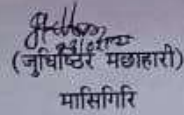 (जुधिष्ठिर मछाहारी)
मासिगिरि